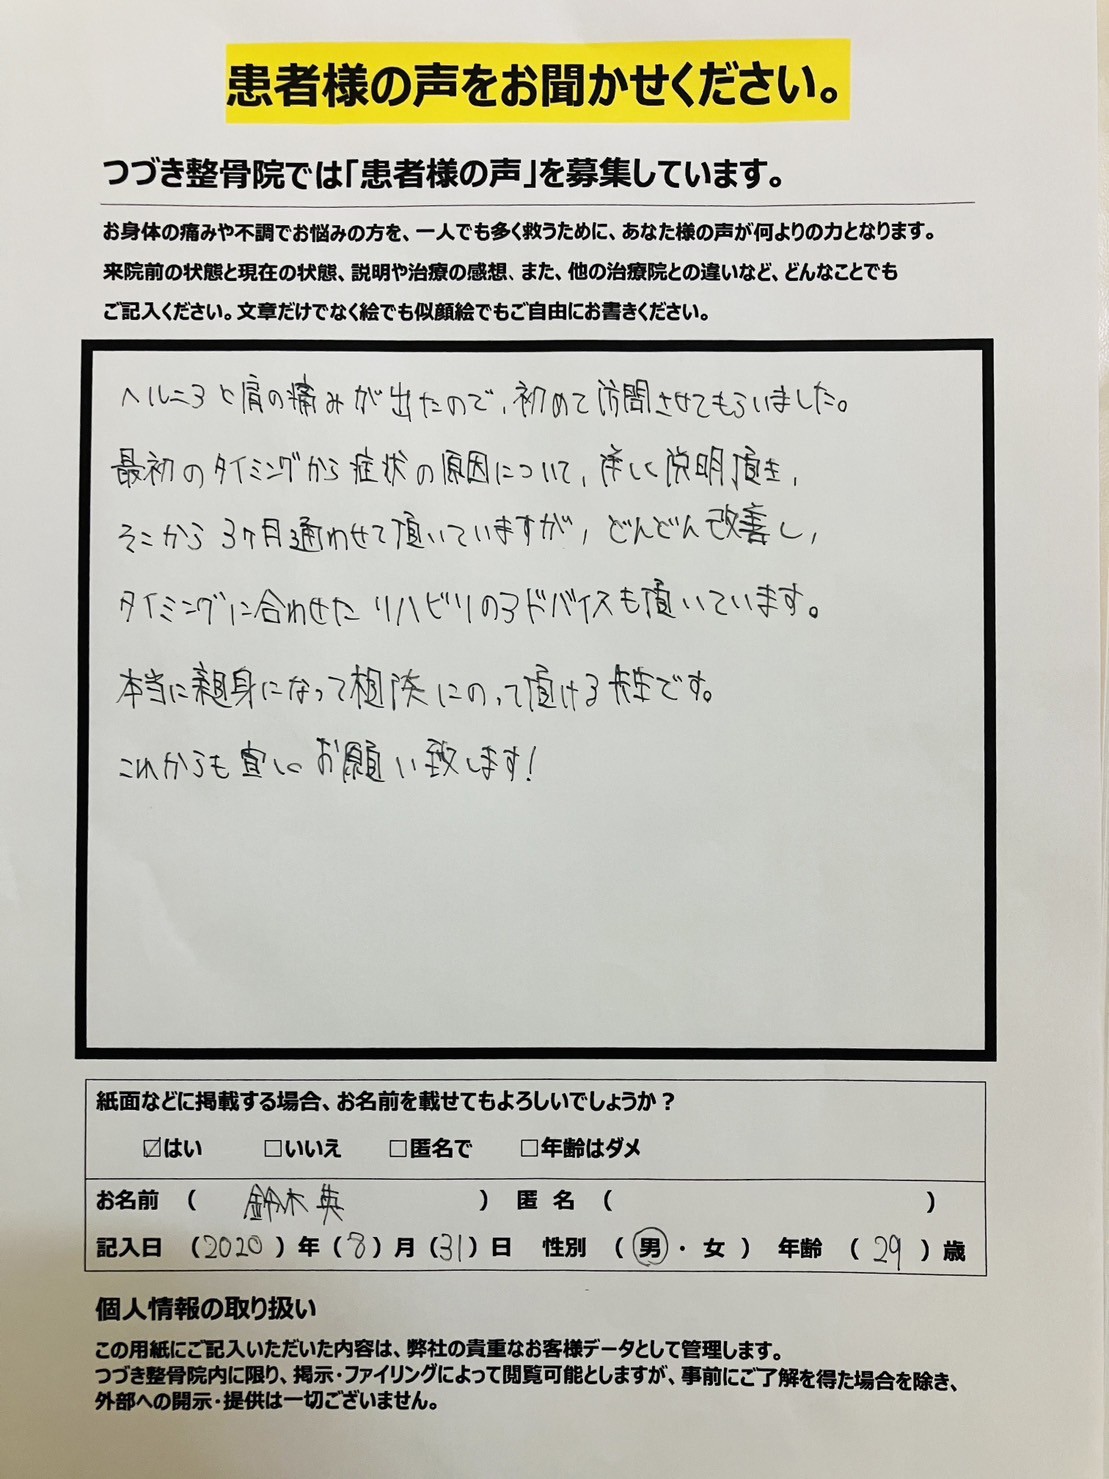 患者様の声をお聞かせください。
つづき整骨院では「患者様の声」を募集しています。
お身体の痛みや不調でお悩みの方を、一人でも多く救うために、あなた様の声が何よりの力となります。
来院前の状態と現在の状態、説明や治療の感想、また、他の治療院との違いなど、どんなことでも
ご記入ください。文章だけでなく絵でも似顔絵でもご自由にお書きください。
ヘルニアと肩の痛みが出たので、初めて訪問させてもらいました。
最初のタイミングから症状の原因について、詳しく説明頂き、
そこから3ヶ月通わせて頂いていますが、どんどん改善し、
タイミングに合わせたリハビリのアドバイスも頂いています。
本当に親身になって相談にのって頂ける先生です。
これからも宜しくお願い致します!
紙面などに掲載する場合、お名前を載せてもよろしいでしょうか?
☑はい □いいえ □匿名で □年齢はダメ
お名前 ( 鈴木 英 ) 匿名 ( )
記入日 (2020)年(8)月(31)日 性別 (男・女) 年齢 (29)歳
個人情報の取り扱い
この用紙にご記入いただいた内容は、弊社の貴重なお客様データとして管理します。
つづき整骨院内に限り、掲示・ファイリングによって閲覧可能としますが、事前にご了解を得た場合を除き、
外部への開示・提供は一切ございません。